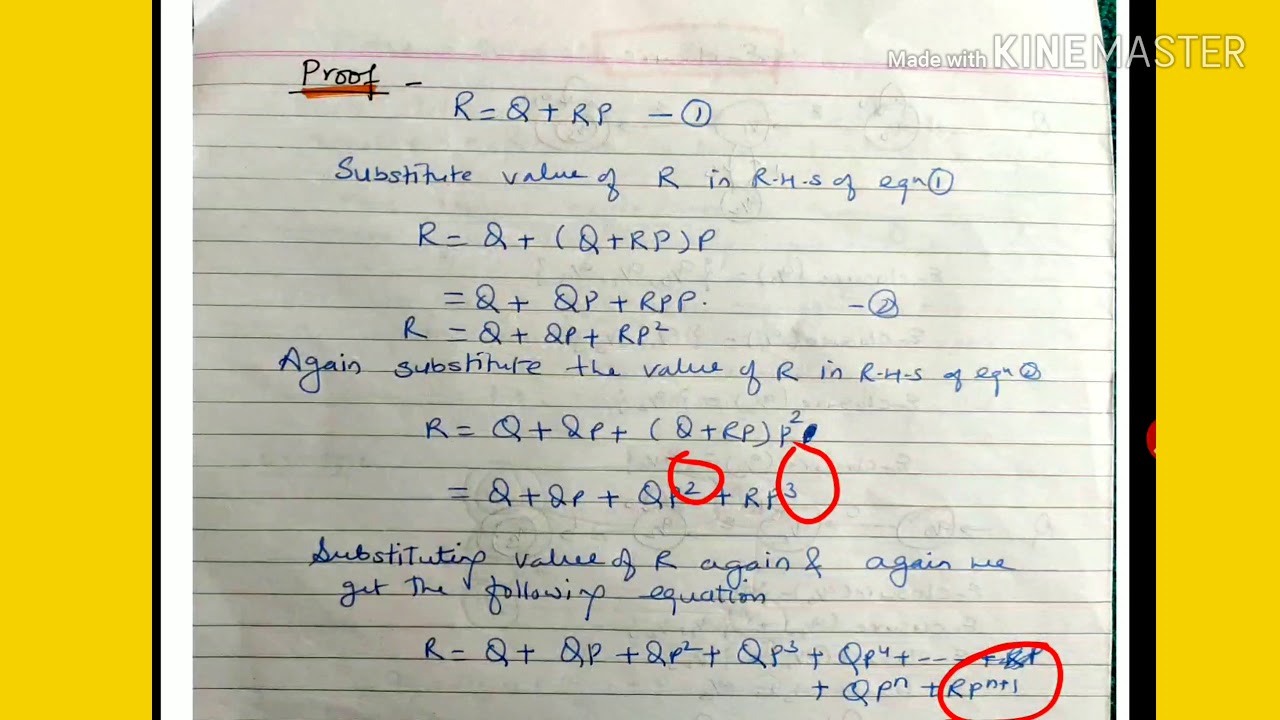 Made with KINEMASTER
Proof -
R = Q + RP - ①
Substitute value of R in R.H.S of eqn ①
R = Q + (Q + RP) P
= Q + QP + RPP. - ②
R = Q + QP + RP²
Again substitute the value of R in R.H.S of eqn ②
R = Q + QP + (Q + RP) P²
= Q + QP + QP² + RP³
Substituting value of R again & again we
get the following equation
R = Q + QP + QP² + QP³ + QP⁴ + ---- +
+ QPⁿ + RPⁿ⁺¹